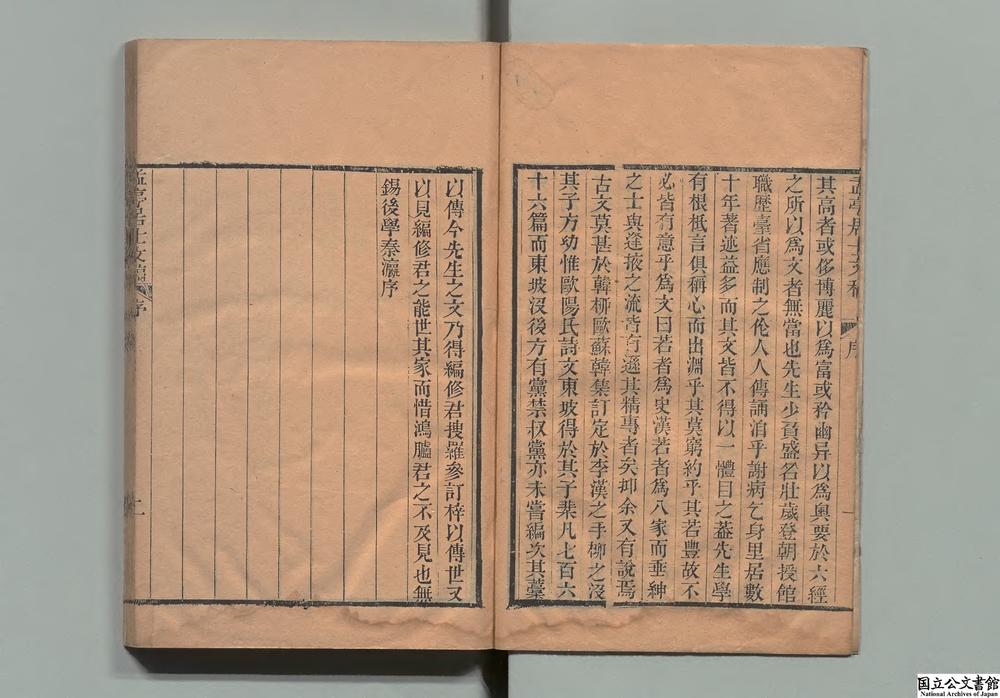 其高者或侈博麗以爲富或矜幽异以爲奧要於六經
之所以爲文者無當也先生少負盛名壯歲登朝授館
職歷臺省應制之作人人傳誦洎乎謝病乞身里居數
十年著述益多而其文皆不得以一體目之葢先生學
有根柢言俱稱心而出淵乎其莫窮約乎其若豐故不
必皆有意乎爲文曰若者爲史漢若者爲八家而垂紳
之士與逢掖之流皆有遜其精專者矣抑余又有說焉
古文莫甚於韓柳歐蘇韓集訂定於李漢之手柳之沒
其子方幼惟歐陽氏詩文東坡得於其子棐凡七百六
十六篇而東坡沒後方有黨禁叔黨亦未嘗編次其藁
孟亭居士文稿
序
以傳今先生之文乃得編修君搜羅參訂梓以傳世又
以見編修君之能世其家而惜鴻臚君之不及見也無
錫後學秦瀛序
孟亭居士文稿
序
二
国立公文書館
National Archives of Japan